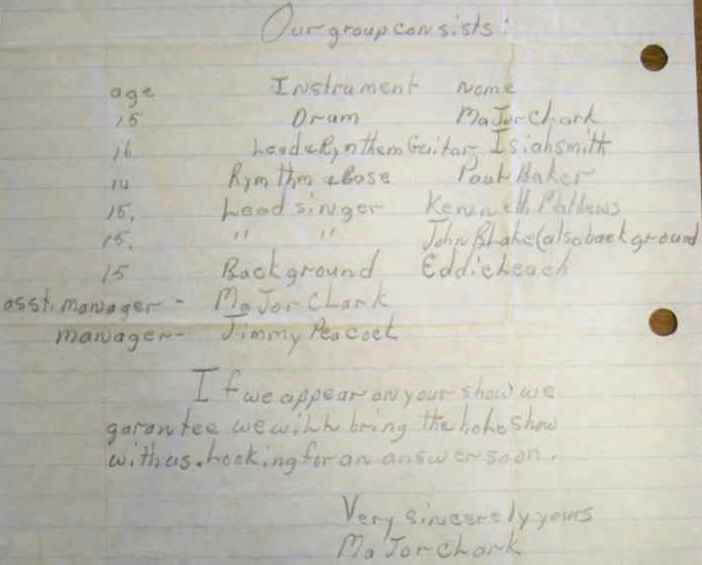 Our group consists:
age Instrument name
15 Drum Major Clark
16 Lead & Rynthem Guitar, Isiah smith
14 Rymthm & Base Paul Baker
15. Lead singer Kenneth Mathews
15. " " John Blake (also background
15 Background Eddie Leach
asst. manager - Major Clark
manager - Jimmy Peacock
If we appear on your show we
garantee we will bring the hole show
with us. Looking for an answer soon.
Very sincerely yours
Major Clark